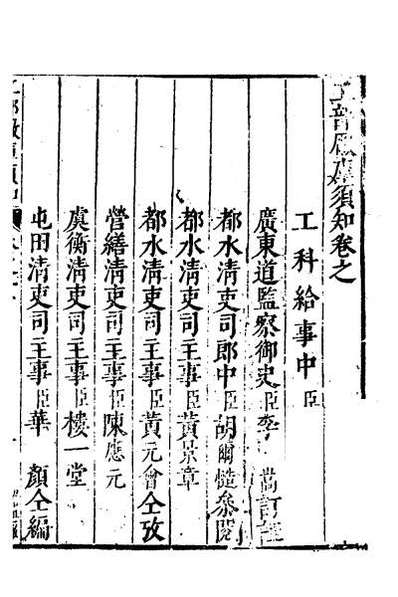 工部厰庫須知卷之
工科給事中臣
廣東道監察御史臣李
都水清吏司郎中臣胡爾慥叅閱
都水清吏司主事臣黃景章
都水清吏司主事臣黃元會仝攷
營繕清吏司主事臣陳應元
虞衡清吏司主事臣樓一堂
屯田清吏司主事臣華　顏仝編